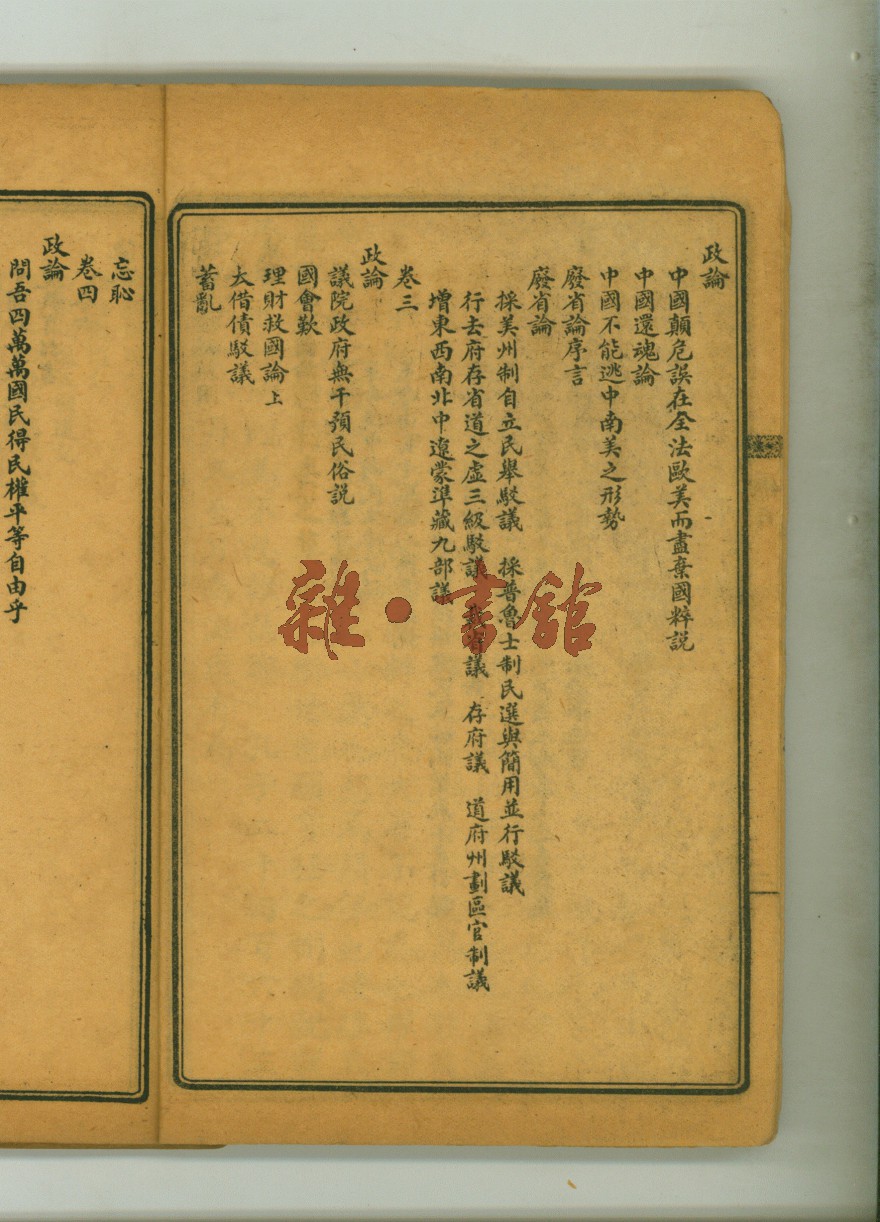 政論
中國顛危誤在全法歐美而盡棄國粹説
中國還魂論
中國不能逃中南美之形勢
廢省論序言
廢省論
採美州制自立民舉駁議　採普魯士制民選與簡用並行駁議
行去府存省道之虛三級駁議　議　存府議　道府州劃區官制議
增東西南北中遼蒙準藏九部議
卷三
政論
議院政府無干預民俗説
國會歎
理財救國論上
大借債駁議
蓄亂
忘恥
卷四
政論
問吾四萬萬國民得民權平等自由乎
雜·書館